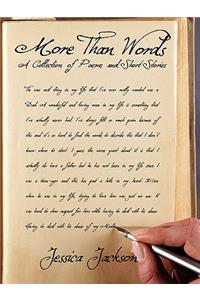 More Than Words
A Collection of Poems and Short Stories
The one and only in my life that I've ever really wanted was a
Dad. A wonderful and loving man in my life is something that
I've actually never had. I've always felt so much pain because of
this and it's so hard to find the words to describe this that I don't
know where to start. I guess the worse part about it is that I
actually do have a father but he has not been in my life since I
was a teen-age and this has put a hole in my heart. Even
when he was in my life, trying to love him was just no use. It
was hard to show respect for him while having to deal with his abuse.
Having to deal with his abuse of my Mother
Jessica Jackson